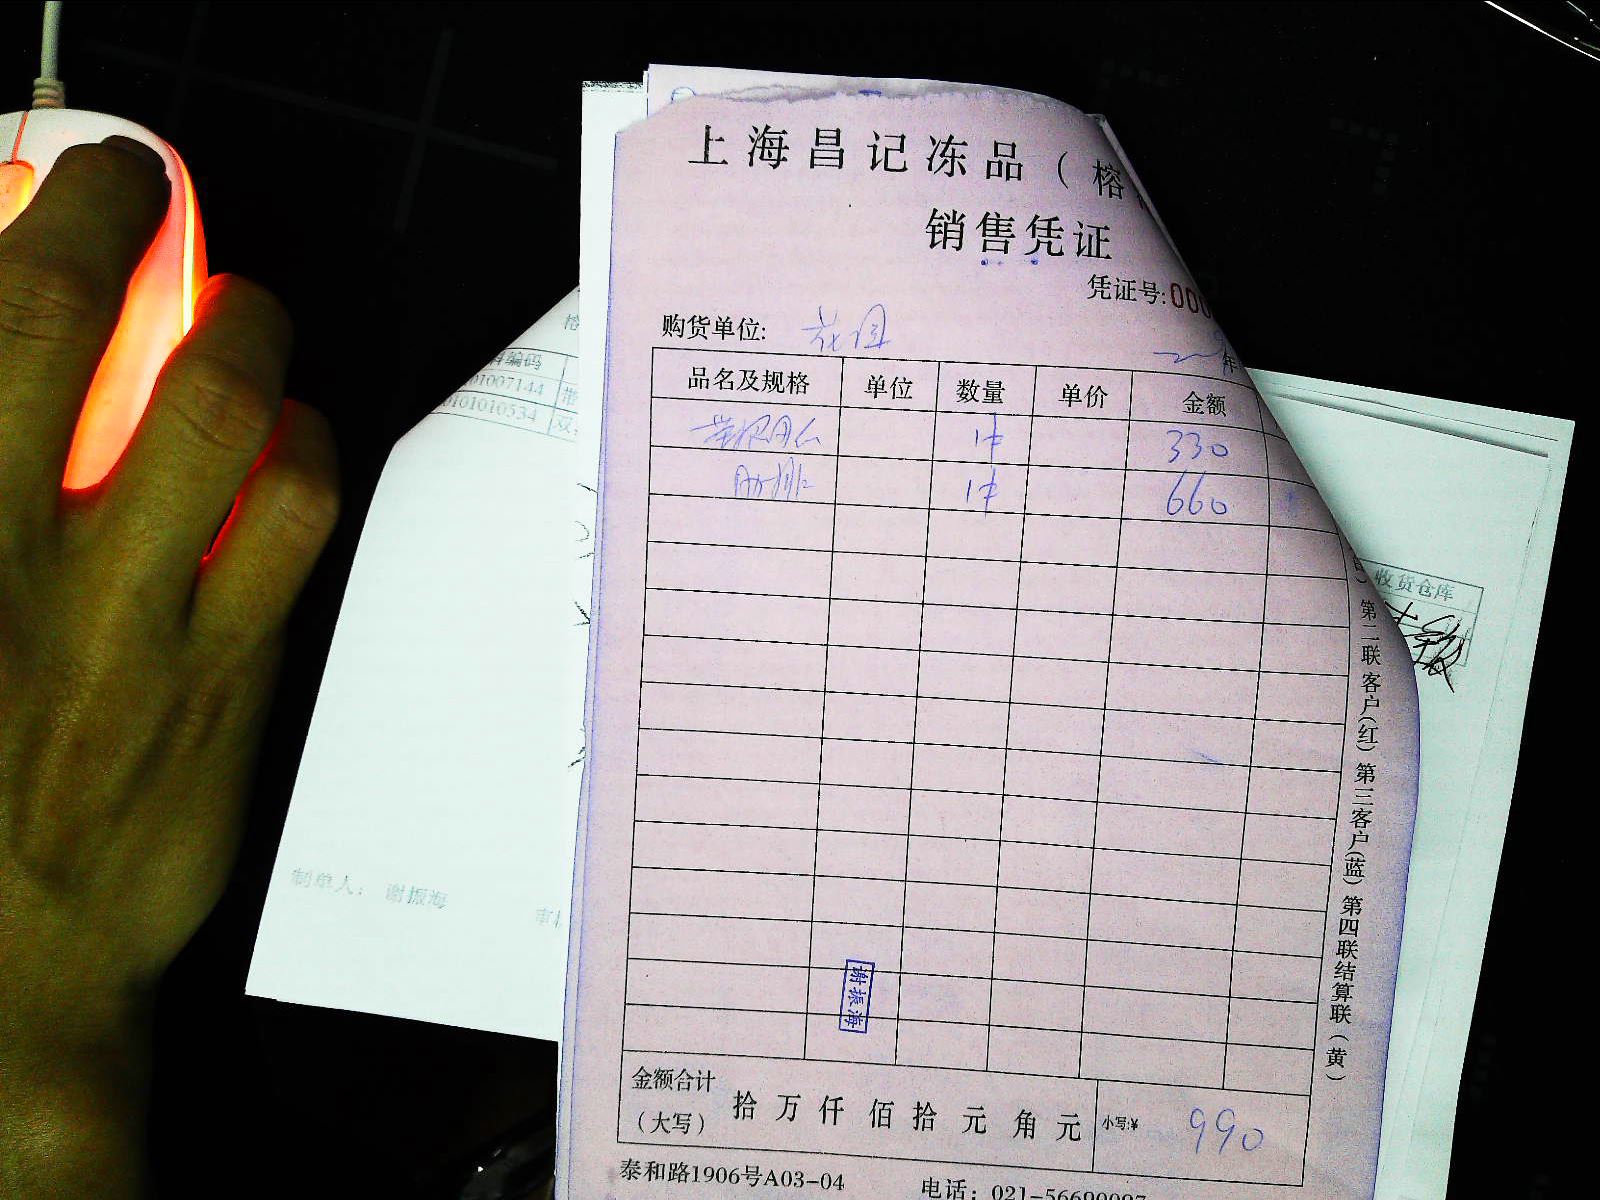 上海昌记冻品（榕
销售凭证
凭证号:000
购货单位: 花园
年
品名及规格 单位 数量 单价 金额
1件 330
肋排 1件 660
谢振海
金额合计（大写） 拾 万 仟 佰 拾 元 角 元 小写:¥ 990
泰和路1906号A03-04 电话：021-56690097
第二联客户(红) 第三客户(蓝) 第四联结算联(黄)
编码
01007144
0101010534 双
制单人： 谢振海
收货仓库